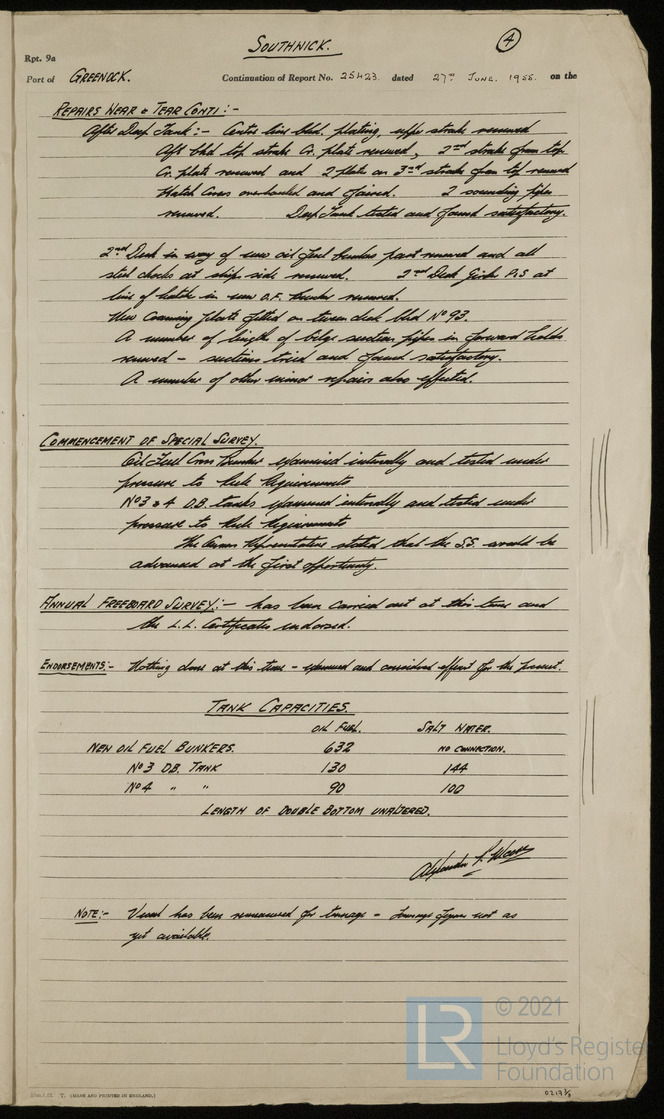 SOUTHWICK.
4
Rpt. 9a
Port of GREENOCK. Continuation of Report No. 25423. dated 27TH JUNE. 1955. on the
REPAIRS WEAR & TEAR CONTI:-
After Deep Tank:- Centre line bhd. plating, upper strake renewed
Aft bhd top strake Cr. plate renewed, 2nd strake from top
Cr. plate renewed and 2 plates on 3rd strake from top renewed
Hatch Covers overhauled and faired. 2 sounding pipes
renewed. Deep Tank tested and found satisfactory.
2nd Deck in way of new oil fuel bunker part renewed and all
steel chocks at ship side renewed. 2nd Deck Girder P&S at
line of hatch in new O.F. bunker renewed.
New Coaming plate fitted on tween deck bhd No 93.
A number of length of bilge suction pipes in forward holds
renewed - suctions tried and found satisfactory.
A number of other minor repairs also effected.
COMMENCEMENT OF SPECIAL SURVEY.
Oil Fuel Cross Bunker examined internally and tested under
pressure to Rule Requirements
No 3 & 4 D.B. tanks examined internally and tested under
pressure to Rule Requirements
The Owners Representative stated that the S.S. would be
advanced at the first opportunity.
ANNUAL FREEBOARD SURVEY:- has been carried out at this time and
the L.L. Certificates endorsed.
ENDORSEMENTS:- Nothing done at this time - examined and considered efficient for the present.
TANK CAPACITIES.
OIL FUEL. SALT WATER.
NEW OIL FUEL BUNKERS. 632 NO CONNECTION.
No 3 DB. TANK 130 144
No 4 " " 90 100
LENGTH OF DOUBLE BOTTOM UNALTERED.
NOTE:- Vessel has been remeasured for tonnage - tonnage figures not as
yet available.
T. (MADE AND PRINTED IN ENGLAND.)
© 2021
LR
Lloyd's Register
Foundation